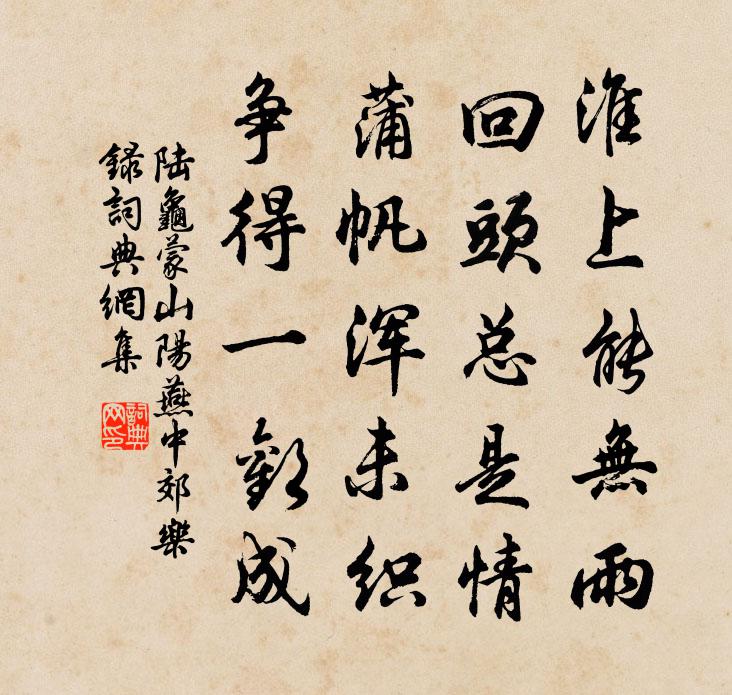 淮上能無雨
回頭总是情
蒲帆浑未织
争得一歡成
陆龜蒙山陽燕中郊樂
録詞典網集
詞典网印